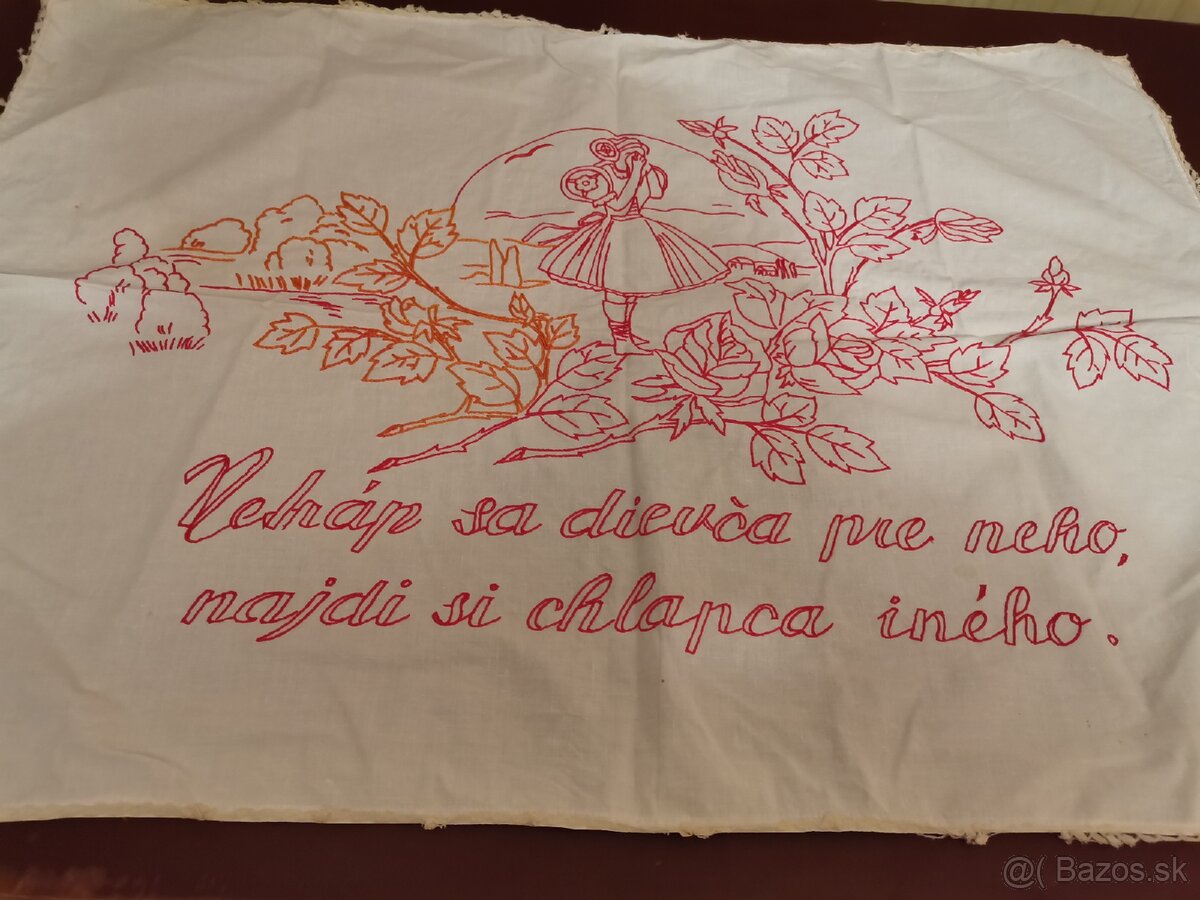 Netráp sa dievča pre neho,
najdi si chlapca iného.
@( Bazos.sk